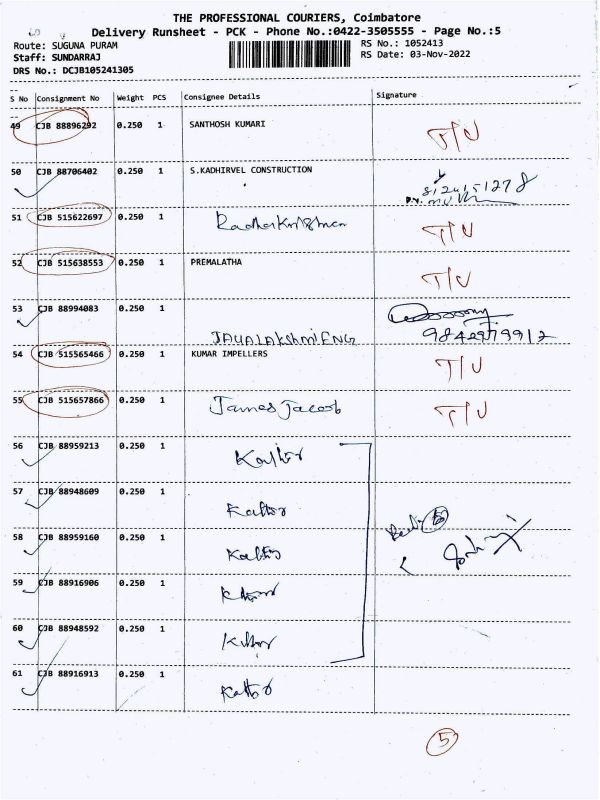 THE PROFESSIONAL COURIERS, Coimbatore
Delivery Runsheet - PCK - Phone No.:0422-3505555 - Page No.:5
Route: SUGUNA PURAM RS No.: 1052413
Staff: SUNDARRAJ RS Date: 03-Nov-2022
DRS No.: DCJB105241305
S No Consignment No Weight PCS Consignee Details Signature
49 CJB 88896292 0.250 1 SANTHOSH KUMARI T/U
50 CJB 88706402 0.250 1 S.KADHIRVEL CONSTRUCTION
51 CJB 515622697 0.250 1 Radha Krishnan T/U
52 CJB 515638553 0.250 1 PREMALATHA T/U
53 CJB 88994083 0.250 1
JAYALAKSHMI ENG
54 CJB 515565466 0.250 1 KUMAR IMPELLERS T/U
55 CJB 515657866 0.250 1 James Jacob T/U
56 CJB 88959213 0.250 1
57 CJB 88948609 0.250 1
58 CJB 88959160 0.250 1
59 CJB 88916906 0.250 1
60 CJB 88948592 0.250 1
61 CJB 88916913 0.250 1
5